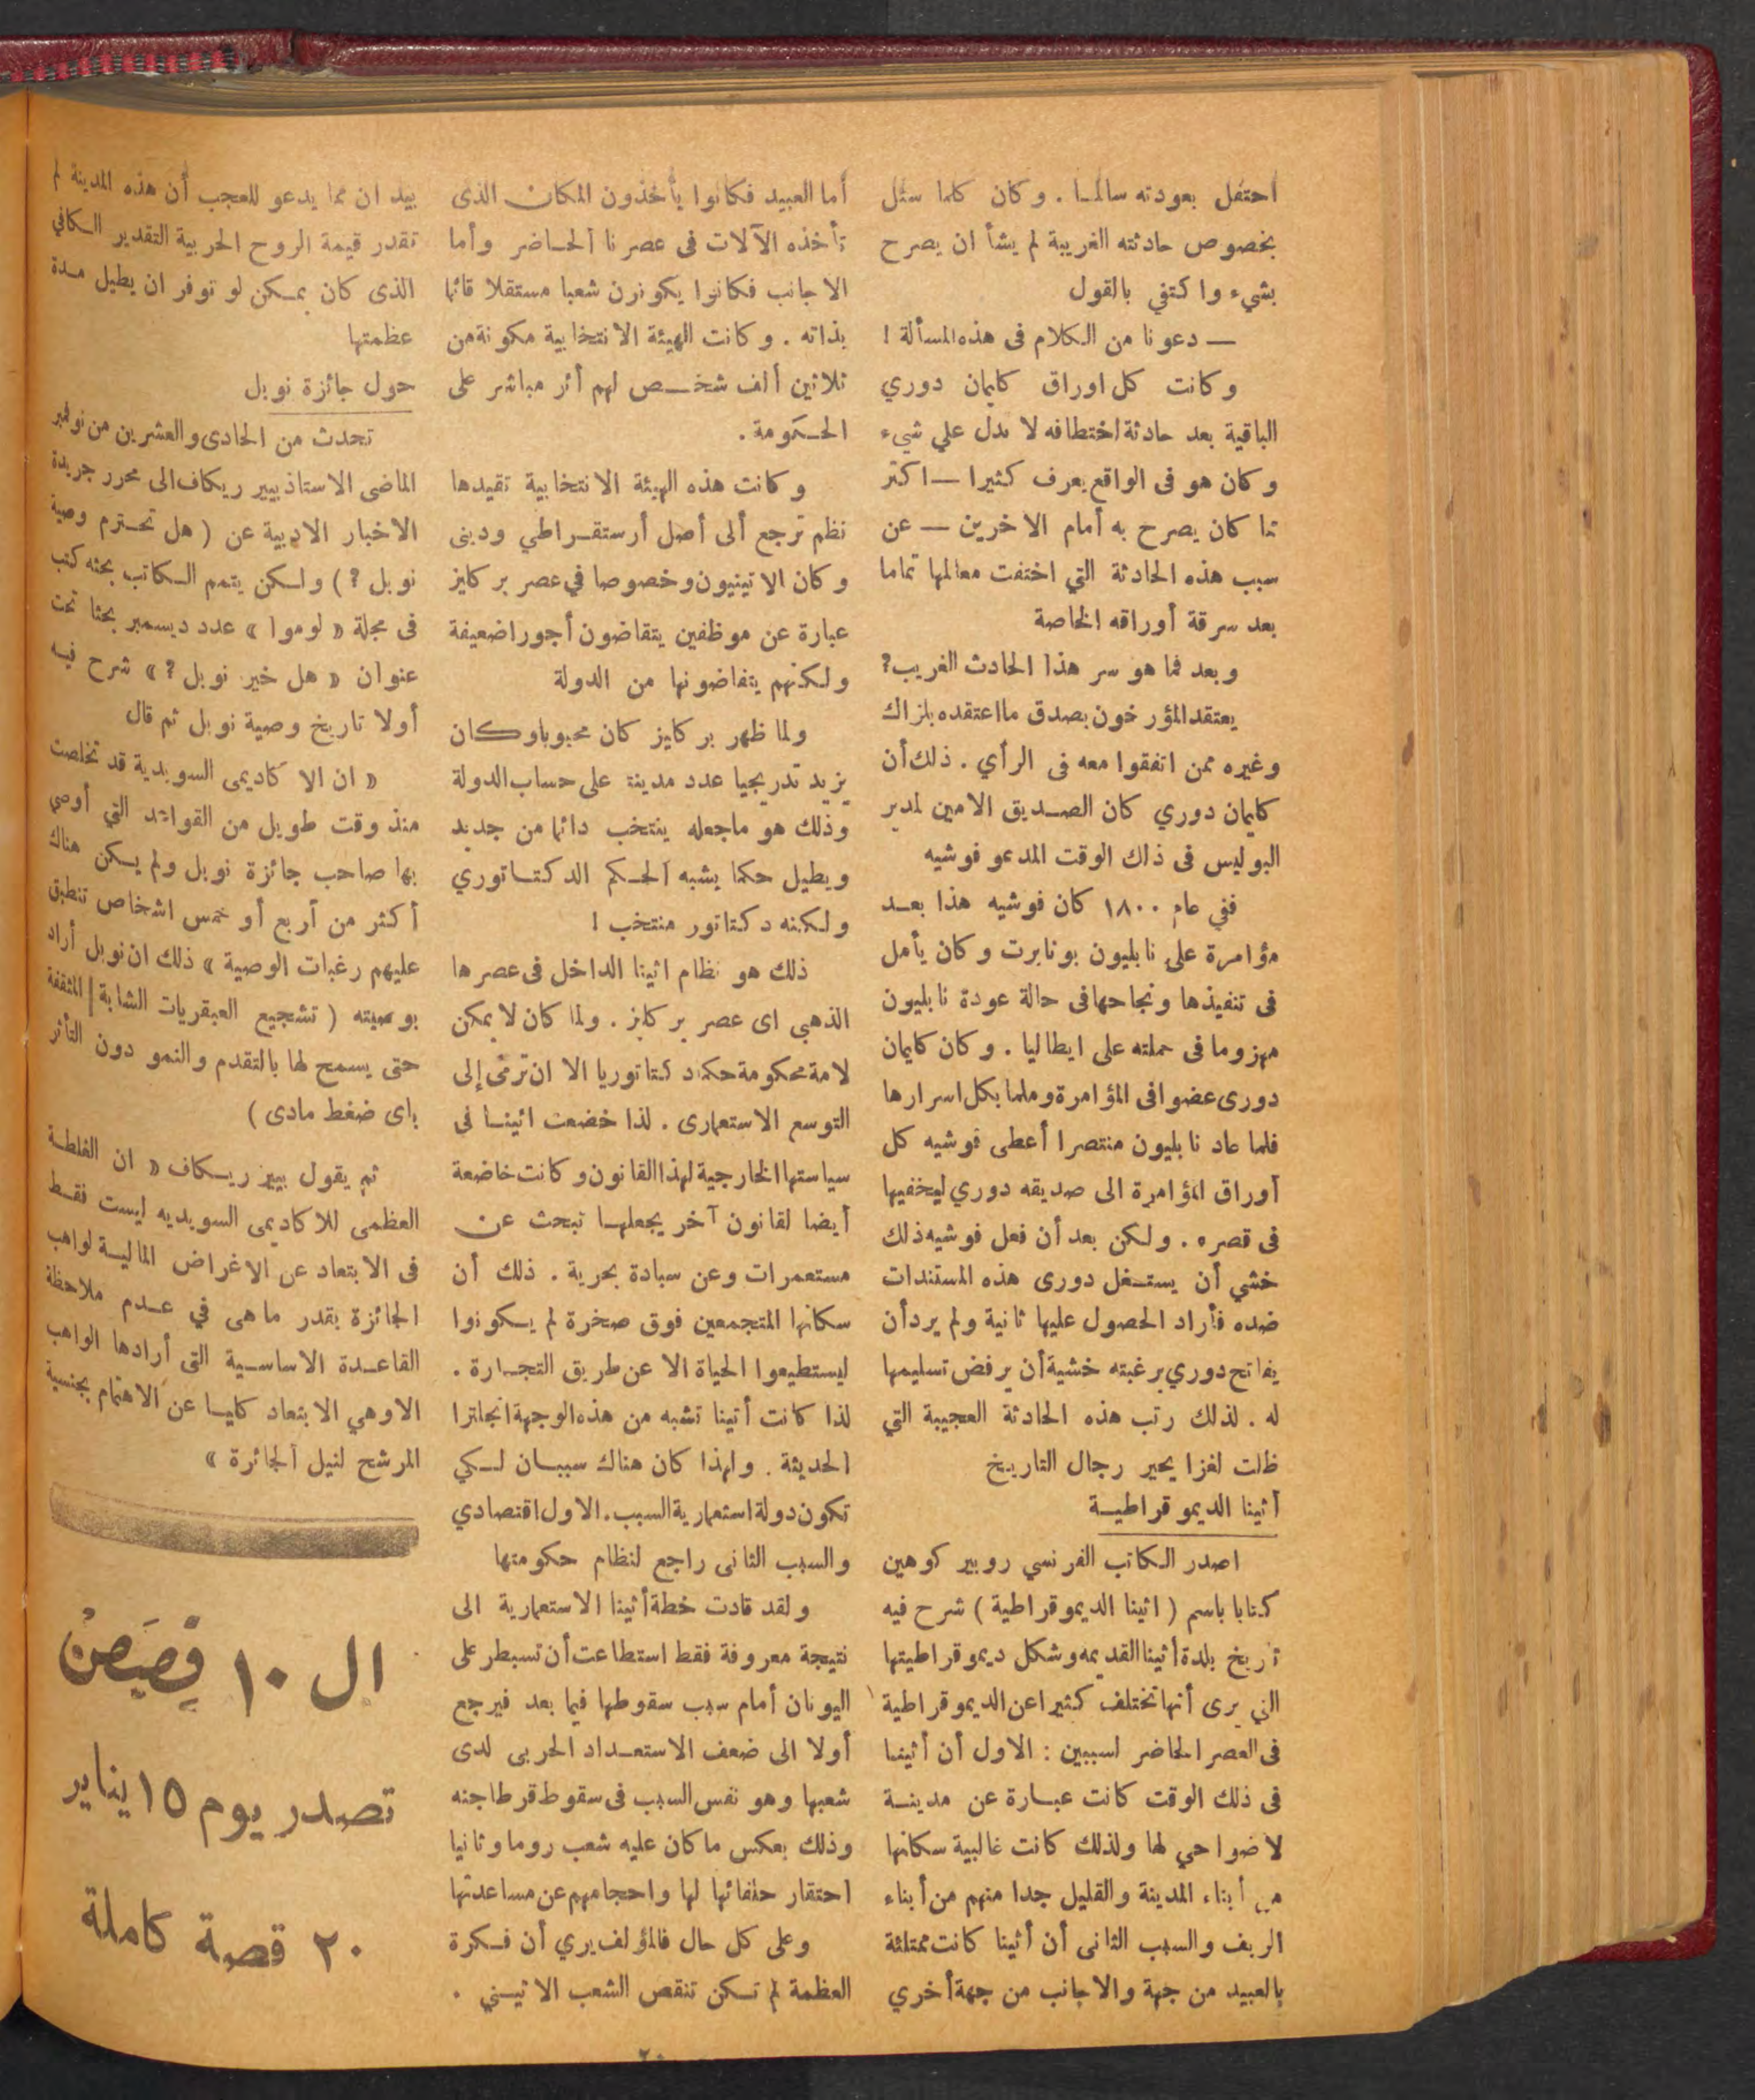 احتفل بعودته سالما . وكان كلما سئل
بخصوص حادثته الغريبة لم يشأ ان يصرح
بشيء واكتفي بالقول
— دعونا من الكلام فى هذه المسألة !
وكانت كل اوراق كليمان دوري
الباقية بعد حادثة اختطافه لا تدل علي شيء
وكان هو فى الواقع يعرف كثيرا — اكثر
مما كان يصرح به أمام الاخرين — عن
سبب هذه الحادثة التي اختفت معالمها تماما
بعد سرقة أوراقه الخاصة
وبعد فما هو سر هذا الحادث الغريب؟
يعتقد المؤرخون بصدق ما اعتقده بلزاك
وغيره ممن اتفقوا معه فى الرأي . ذلك أن
كليمان دوري كان الصديق الامين لمدير
البوليس فى ذاك الوقت المدعو فوشيه
ففي عام ١٨٠٠ كان فوشيه هذا بعد
مؤامرة على نابليون بونابرت وكان يأمل
فى تنفيذها ونجاحها فى حالة عودة نابليون
مهزوما فى حملته على ايطاليا . وكان كليمان
دورى عضوا فى المؤامرة وملما بكل اسرارها
فلما عاد نابليون منتصرا أعطى فوشيه كل
أوراق المؤامرة الى صديقه دوري ليخفيها
فى قصره . ولكن بعد أن فعل فوشيه ذلك
خشي أن يستغل دورى هذه المستندات
ضده فأراد الحصول عليها ثانية ولم يرد أن
يفاتح دوري برغبته خشية أن يرفض تسليمها
له . لذلك رتب هذه الحادثة العجيبة التي
ظلت لغزا يحير رجال التاريخ
أثينا الديموقراطية
اصدر الكاتب الفرنسي روبير كوهين
كتابا باسم ( اثينا الديموقراطية ) شرح فيه
تاريخ بلدة أثينا القديمه وشكل ديموقراطيتها
التي يرى أنها تختلف كثيرا عن الديموقراطية
فى العصر الحاضر لسببين : الاول أن أثينا
فى ذلك الوقت كانت عبارة عن مدينة
لا ضواحي لها ولذلك كانت غالبية سكانها
من أبناء المدينة والقليل جدا منهم من أبناء
الريف والسبب الثانى أن أثينا كانت ممتلئة
بالعبيد من جهة والاجانب من جهة أخري
أما العبيد فكانوا يأخذون المكان الذى
تأخذه الآلات فى عصرنا الحاضر وأما
الاجانب فكانوا يكونون شعبا مستقلا قائما
بذاته . وكانت الهيئة الانتخابية مكونة من
ثلاثين ألف شخص لهم أثر مباشر على
الحكومة .
وكانت هذه الهيئة الانتخابية تقيدها
نظم ترجع ألى أصل أرستقراطي ودينى
وكان الاتينيون وخصوصا في عصر بركليز
عبارة عن موظفين يتقاضون أجورا ضعيفة
ولكنهم يتقاضونها من الدولة
ولما ظهر بركليز كان محبوبا وكان
يزيد تدريجيا عدد مدينة على حساب الدولة
وذلك هو ماجعله ينتخب دائما من جديد
ويطيل حكما يشبه الحكم الدكتاتوري
ولكنه دكتاتور منتخب !
ذلك هو نظام اثينا الداخل فى عصرها
الذهبي اى عصر بركليز . ولما كان لا يمكن
لامة محكومة حكما دكتاتوريا الا ان ترمى إلى
التوسع الاستعمارى . لذا خضعت اثينا فى
سياستها الخارجية لهذا القانون وكانت خاضعة
أيضا لقانون آخر يجعلها تبحث عن
مستعمرات وعن سيادة بحرية . ذلك أن
سكانها المتجمعين فوق صخرة لم يكونوا
ليستطيعوا الحياة الا عن طريق التجارة .
لذا كانت أتينا تشبه من هذه الوجهة انجلترا
الحديثة . ولهذا كان هناك سببان لكي
تكون دولة استعمارية السبب . الاول اقتصادي
والسبب الثانى راجع لنظام حكومتها
ولقد قادت خطة أثينا الاستعمارية الى
نتيجة معروفة فقط استطاعت أن تسيطر على
اليونان أمام سبب سقوطها فيما بعد فيرجع
أولا الى ضعف الاستعداد الحربى لدى
شعبها وهو نفس السبب فى سقوط قرطاجنه
وذلك بعكس ماكان عليه شعب روما وثانيا
احتقار حلفائها لها واحجامهم عن مساعدتها
وعلى كل حال فالمؤلف يري أن فكرة
العظمة لم تكن تنقص الشعب الاثيني .
بيد ان مما يدعو للعجب أن هذه المدينة لم
تقدر قيمة الروح الحربية التقدير الكافي
الذى كان يمكن لو توفر ان يطيل مدة
عظمتها
حول جائزة نوبل
تحدث من الحادى والعشرين من نوفمبر
الماضى الاستاذ بيير ريكاف الى محرر جريدة
الاخبار الادبية عن ( هل تحترم وصية
نوبل ؟ ) ولكن يتمم الكاتب بحثه كتب
فى مجلة « لوموا » عدد ديسمبر بحثا تحت
عنوان « هل خير نوبل ؟ » شرح فيه
أولا تاريخ وصية نوبل ثم قال
« ان الاكاديمى السويدية قد تخلصت
منذ وقت طويل من القواعد التي أوصي
بها صاحب جائزة نوبل ولم يكن هناك
أكثر من أربع أو خمس اشخاص تنطبق
عليهم رغبات الوصية » ذلك ان نوبل أراد
بوصيته ( تشجيع العبقريات الشابة المثقفة
حتى يسمح لها بالتقدم والنمو دون التأثر
باى ضغط مادى )
ثم يقول بيير ريكاف « ان الغلطة
العظمى للاكاديمى السويديه ليست فقط
فى الابتعاد عن الاغراض المالية لواهب
الجائزة بقدر ماهى في عدم ملاحظة
القاعدة الاساسية التى أرادها الواهب
الاوهي الابتعاد كليا عن الاهتمام بجنسية
المرشح لنيل الجائزة »
ال ١٠ قصص
تصدر يوم ١٥ يناير
٢٠ قصة كاملة
٢٠